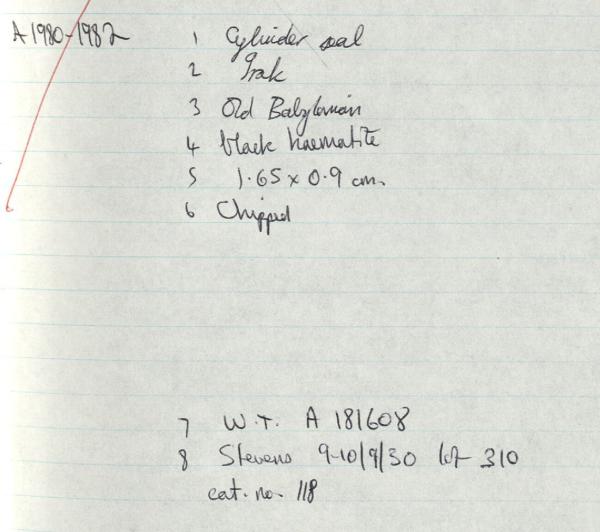 A 1980-1982
1 Cylinder seal
2 Irak
3 Old Babylonian
4 black haematite
5 1.65 x 0.9 cm.
6 Chipped
7 W.T. A 181608
8 Stevens 9-10/9/30 lot 310
cat. no. 118